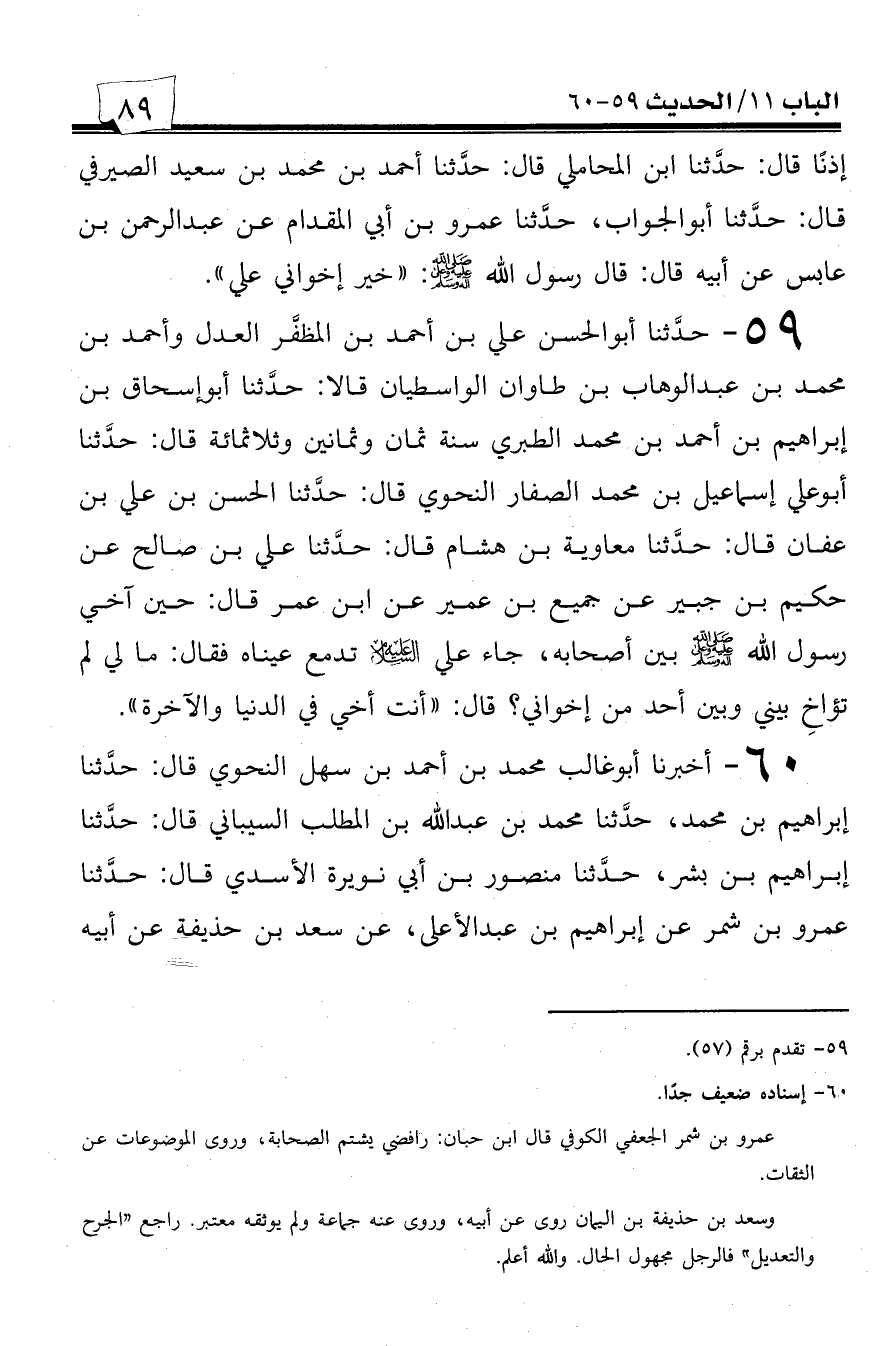 الباب ١١/الحديث ٥٩-٦٠
٨٩
إذنًا قال: حدَّثنا ابن المحاملي قال: حدَّثنا أحمد بن محمد بن سعيد الصيرفي
قال: حدَّثنا أبوالجواب، حدَّثنا عمرو بن أبي المقدام عن عبدالرحمن بن
عابس عن أبيه قال: قال رسول الله ﷺ: «خير إخواني علي».
٥٩- حدَّثنا أبوالحسن علي بن أحمد بن المظفَّر العدل وأحمد بن
محمد بن عبدالوهاب بن طاوان الواسطيان قالا: حدَّثنا أبوإسحاق بن
إبراهيم بن أحمد بن محمد الطبري سنة ثمان وثمانين وثلاثمائة قال: حدَّثنا
أبوعلي إسماعيل بن محمد الصفار النحوي قال: حدَّثنا الحسن بن علي بن
عفان قال: حدَّثنا معاوية بن هشام قال: حدَّثنا علي بن صالح عن
حكيم بن جبير عن جميع بن عمير عن ابن عمر قال: حين آخي
رسول الله ﷺ بين أصحابه، جاء علي عليه السلام تدمع عيناه فقال: ما لي لم
تؤاخِ بيني وبين أحد من إخواني؟ قال: «أنت أخي في الدنيا والآخرة».
٦٠- أخبرنا أبوغالب محمد بن أحمد بن سهل النحوي قال: حدَّثنا
إبراهيم بن محمد، حدَّثنا محمد بن عبدالله بن المطلب السيباني قال: حدَّثنا
إبراهيم بن بشر، حدَّثنا منصور بن أبي نويرة الأسدي قال: حدَّثنا
عمرو بن شمر عن إبراهيم بن عبدالأعلى، عن سعد بن حذيفة عن أبيه
٥٩- تقدم برقم (٥٧).
٦٠- إسناده ضعيف جدًا.
عمرو بن شمر الجعفي الكوفي قال ابن حبان: رافضي يشتم الصحابة، وروى الموضوعات عن
الثقات.
وسعد بن حذيفة بن اليمان روى عن أبيه، وروى عنه جماعة ولم يوثقه معتبر. راجع «الجرح
والتعديل» فالرجل مجهول الحال. والله أعلم.